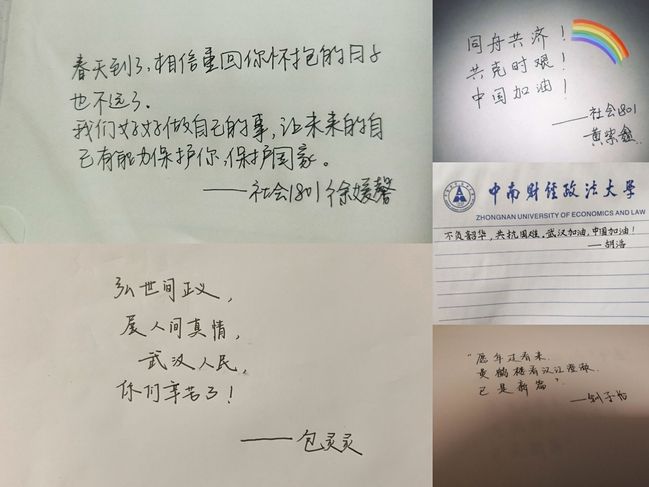 春天到了,相信重回你怀抱的日子
也不远了.
我们好好做自己的事,让未来的自
己有能力保护你,保护国家。
——社会1801徐媛馨
弘世间正义,
展人间真情,
武汉人民,
你们辛苦了!
——包灵灵
同舟共济!
共克时艰!
中国加油!
——社会1801
黄紫鑫
中南财经政法大学
ZHONGNAN UNIVERSITY OF ECONOMICS AND LAW
不负韶华,共抗国难。武汉加油,中国加油!
——胡浩
"愿年迈春来,
黄鹤楼看汉江澄澈,
已是新篇"